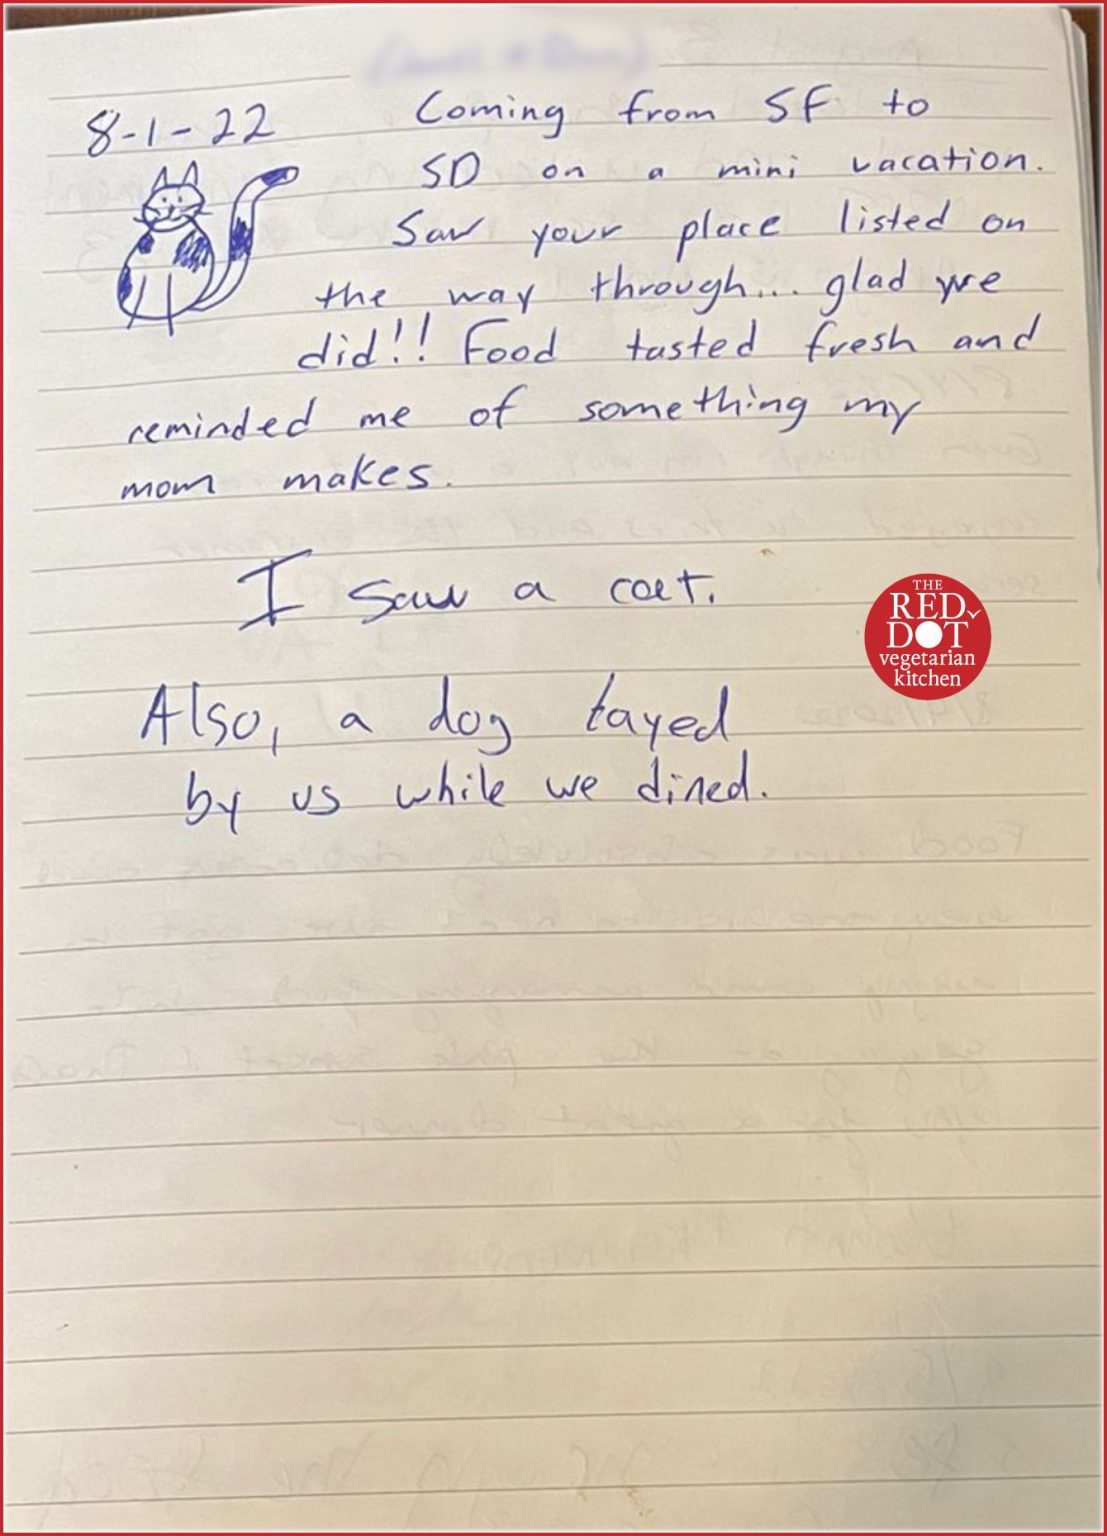 8-1-22
Coming from SF to
SD on a mini vacation.
Saw your place listed on
the way through... glad we
did!! Food tasted fresh and
reminded me of something my
mom makes.
I saw a cat.
THE
RED
DOT
vegetarian
kitchen
Also, a dog tayed
by us while we dined.